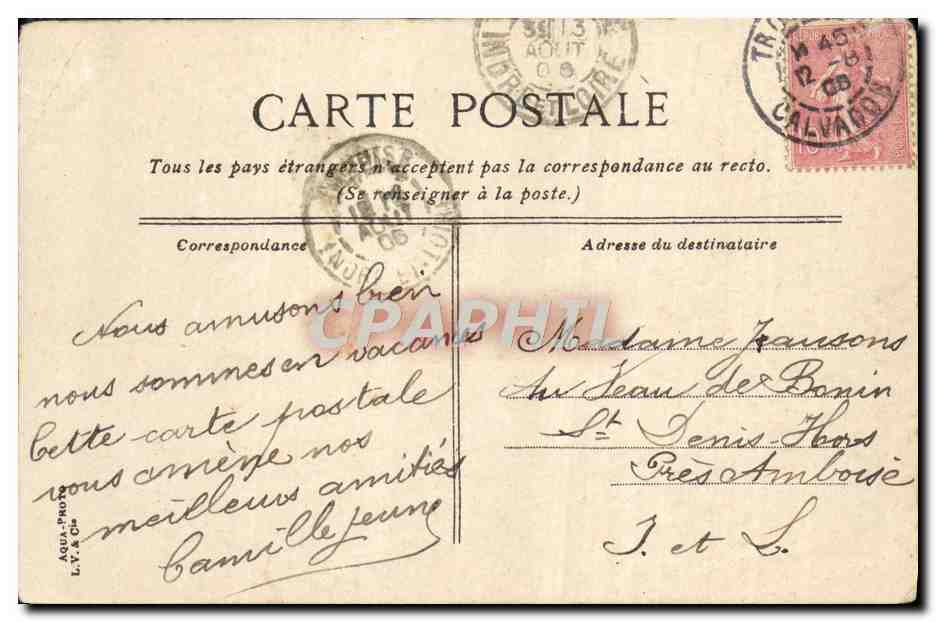 35 13
AOUT
06
INDRE ET LOIRE
45
12 -8
06
CALVADOS
CARTE POSTALE
Tous les pays étrangers n'acceptent pas la correspondance au recto.
(Se renseigner à la poste.)
AOUT
06
Correspondance
Nous amusons bien
nous sommes en vacances
Cette carte postale
vous amène nos
meilleurs amitiés
Camille jeune
AQUA-PHOTO
L.V. & Cie
CPAPHIL
Adresse du destinataire
Madame Jeausons
Au Veau de Bonin
St Denis-Hors
Près Amboise
I. et L.